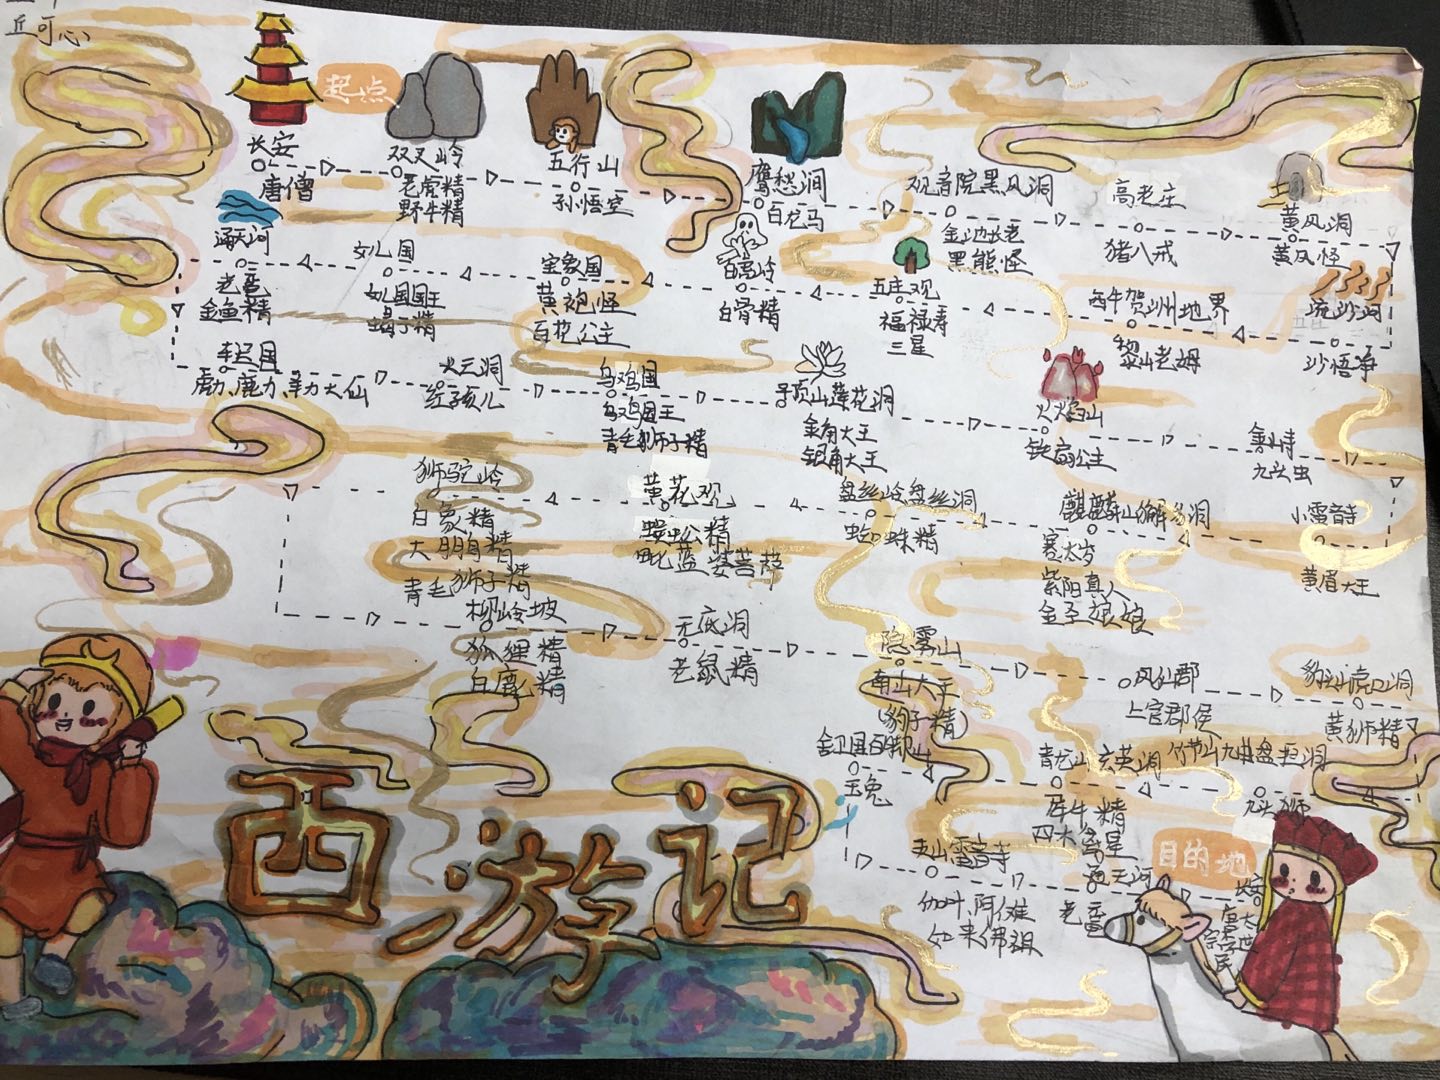 丘可心
起点
长安
唐僧
双叉岭
老虎精
野牛精
五行山
孙悟空
鹰愁涧
白龙马
观音院黑风洞
金池长老
黑熊怪
高老庄
猪八戒
黄风洞
黄风怪
流沙河
沙悟净
西牛贺洲地界
黎山老姆
五庄观
福禄寿
三星
白骨岭
白骨精
宝象国
黄袍怪
百花公主
女儿国
女儿国国王
蝎子精
通天河
老鼋
金鱼精
车迟国
虎力、鹿力、羊力大仙
火云洞
红孩儿
乌鸡国
乌鸡国王
青毛狮子精
平顶山莲花洞
金角大王
银角大王
火焰山
铁扇公主
金山寺
九头虫
小雷音寺
黄眉大王
麒麟山獬豸洞
赛太岁
紫阳真人
金圣娘娘
盘丝岭盘丝洞
蜘蛛精
黄花观
蜈蚣精
毗蓝婆菩萨
狮驼岭
白象精
大朋鸟精
青毛狮子精
柳岭坡
狐狸精
白鹿精
无底洞
老鼠精
隐雾山
南山大王
(豹子精)
凤仙郡
上官郡侯
豹头山虎口洞
黄狮精
竹节山九曲盘桓洞
九头狮
青龙山玄英洞
犀牛精
四木禽星
金卫国百脚山
玉兔
灵山雷音寺
伽叶、阿傩
如来佛祖
通天河
老鼋
目的地
长安
唐太
宗李世
民
西游记